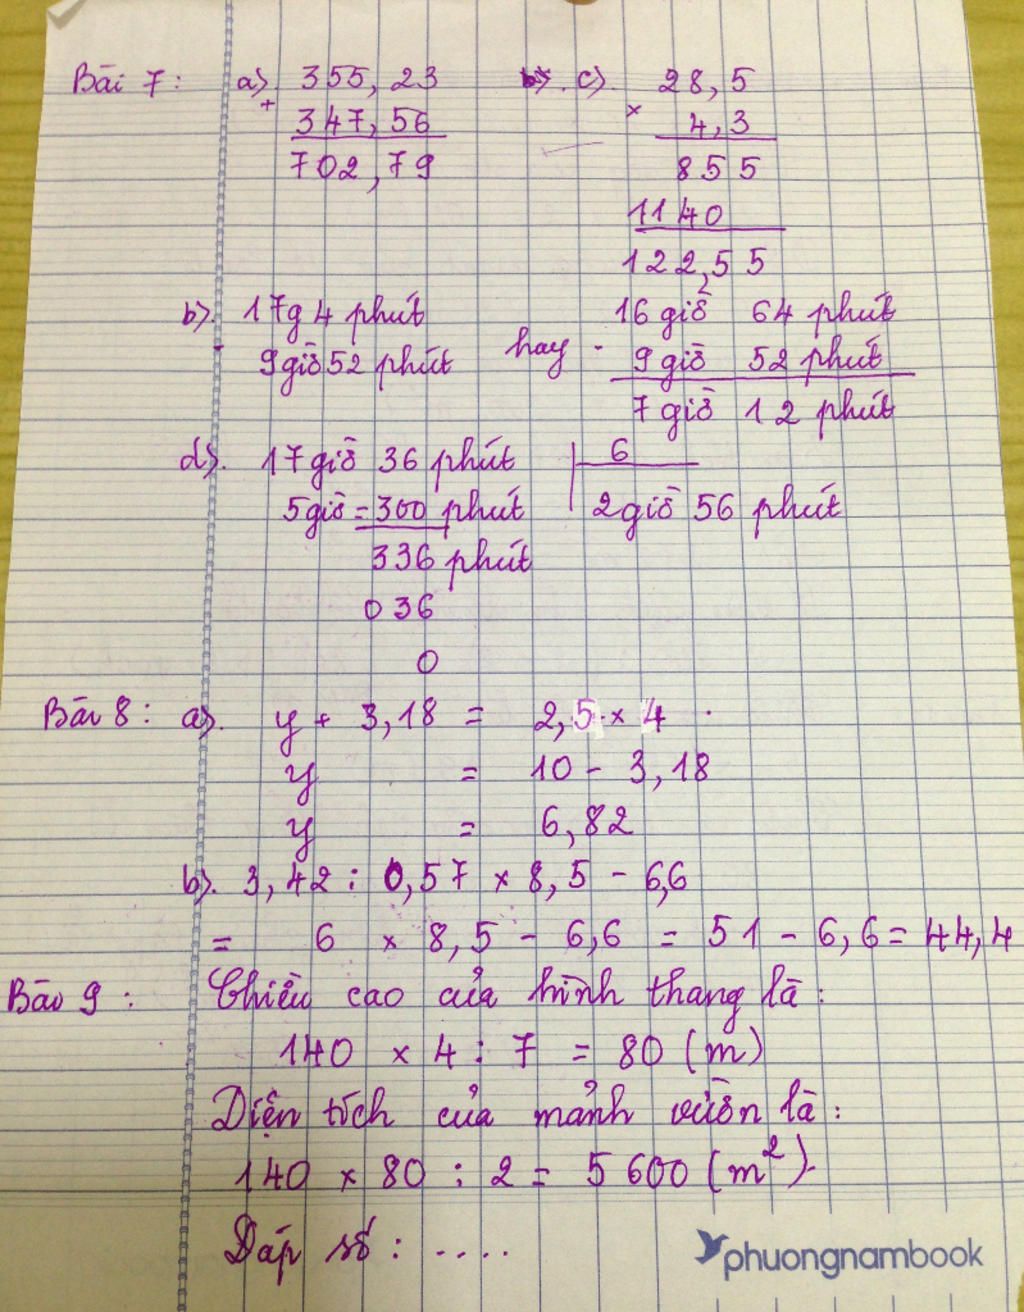 Bài 7 : a) 355,23 c) 28,5
+ 347,56 × 4,3
702,79 855
1140
122,55
b). 17g 4 phút 16 giờ 64 phút
- 9 giờ 52 phút hay - 9 giờ 52 phút
7 giờ 12 phút
d). 17 giờ 36 phút 6
5 giờ = 300 phút 2 giờ 56 phút
336 phút
036
0
Bài 8 : a). y + 3,18 = 2,5 × 4
y = 10 - 3,18
y = 6,82
b). 3,42 : 0,57 × 8,5 - 6,6
= 6 × 8,5 - 6,6 = 51 - 6,6 = 44,4
Bài 9 : Chiều cao của hình thang là :
140 × 4 : 7 = 80 (m)
Diện tích của mảnh vườn là :
140 × 80 : 2 = 5 600 (m²).
Đáp số : ....
phuongnambook